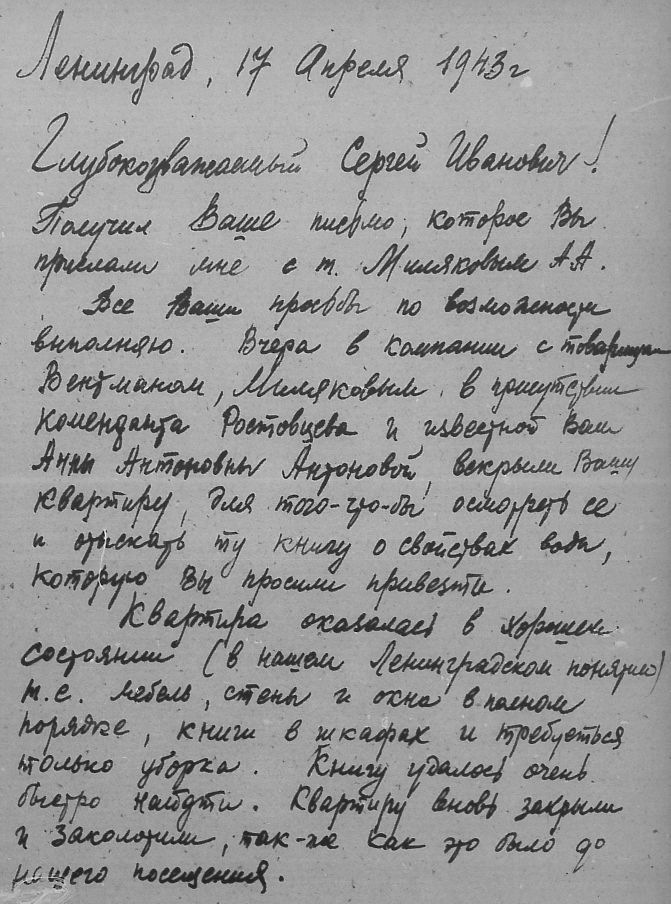 Ленинград, 17 Апреля 1943 г
Глубокоуважаемый Сергей Иванович!
Получил Ваше письмо, которое Вы
прислали мне с т. Миляковым А А.
Все Ваши просьбы по возможности
выполняю. Вчера в компании с товарищами
Вентманом, Миляковым в присутствии
коменданта Ростовцева и известной Вам
Анны Антоновны Антоновой, вскрыли Вашу
квартиру, для того-что-бы осмотреть ее
и отыскать ту книгу о свойствах воды,
которую Вы просили привезти.
Квартира оказалась в хорошем
состоянии (в нашем Ленинградском понятии)
т.е. мебель, стены и окна в полном
порядке, книги в шкафах и требуеться
только уборка. Книгу удалось очень
быстро найдти. Квартиру вновь закрыли
и заколотили, так-же как это было до
нашего посещения.